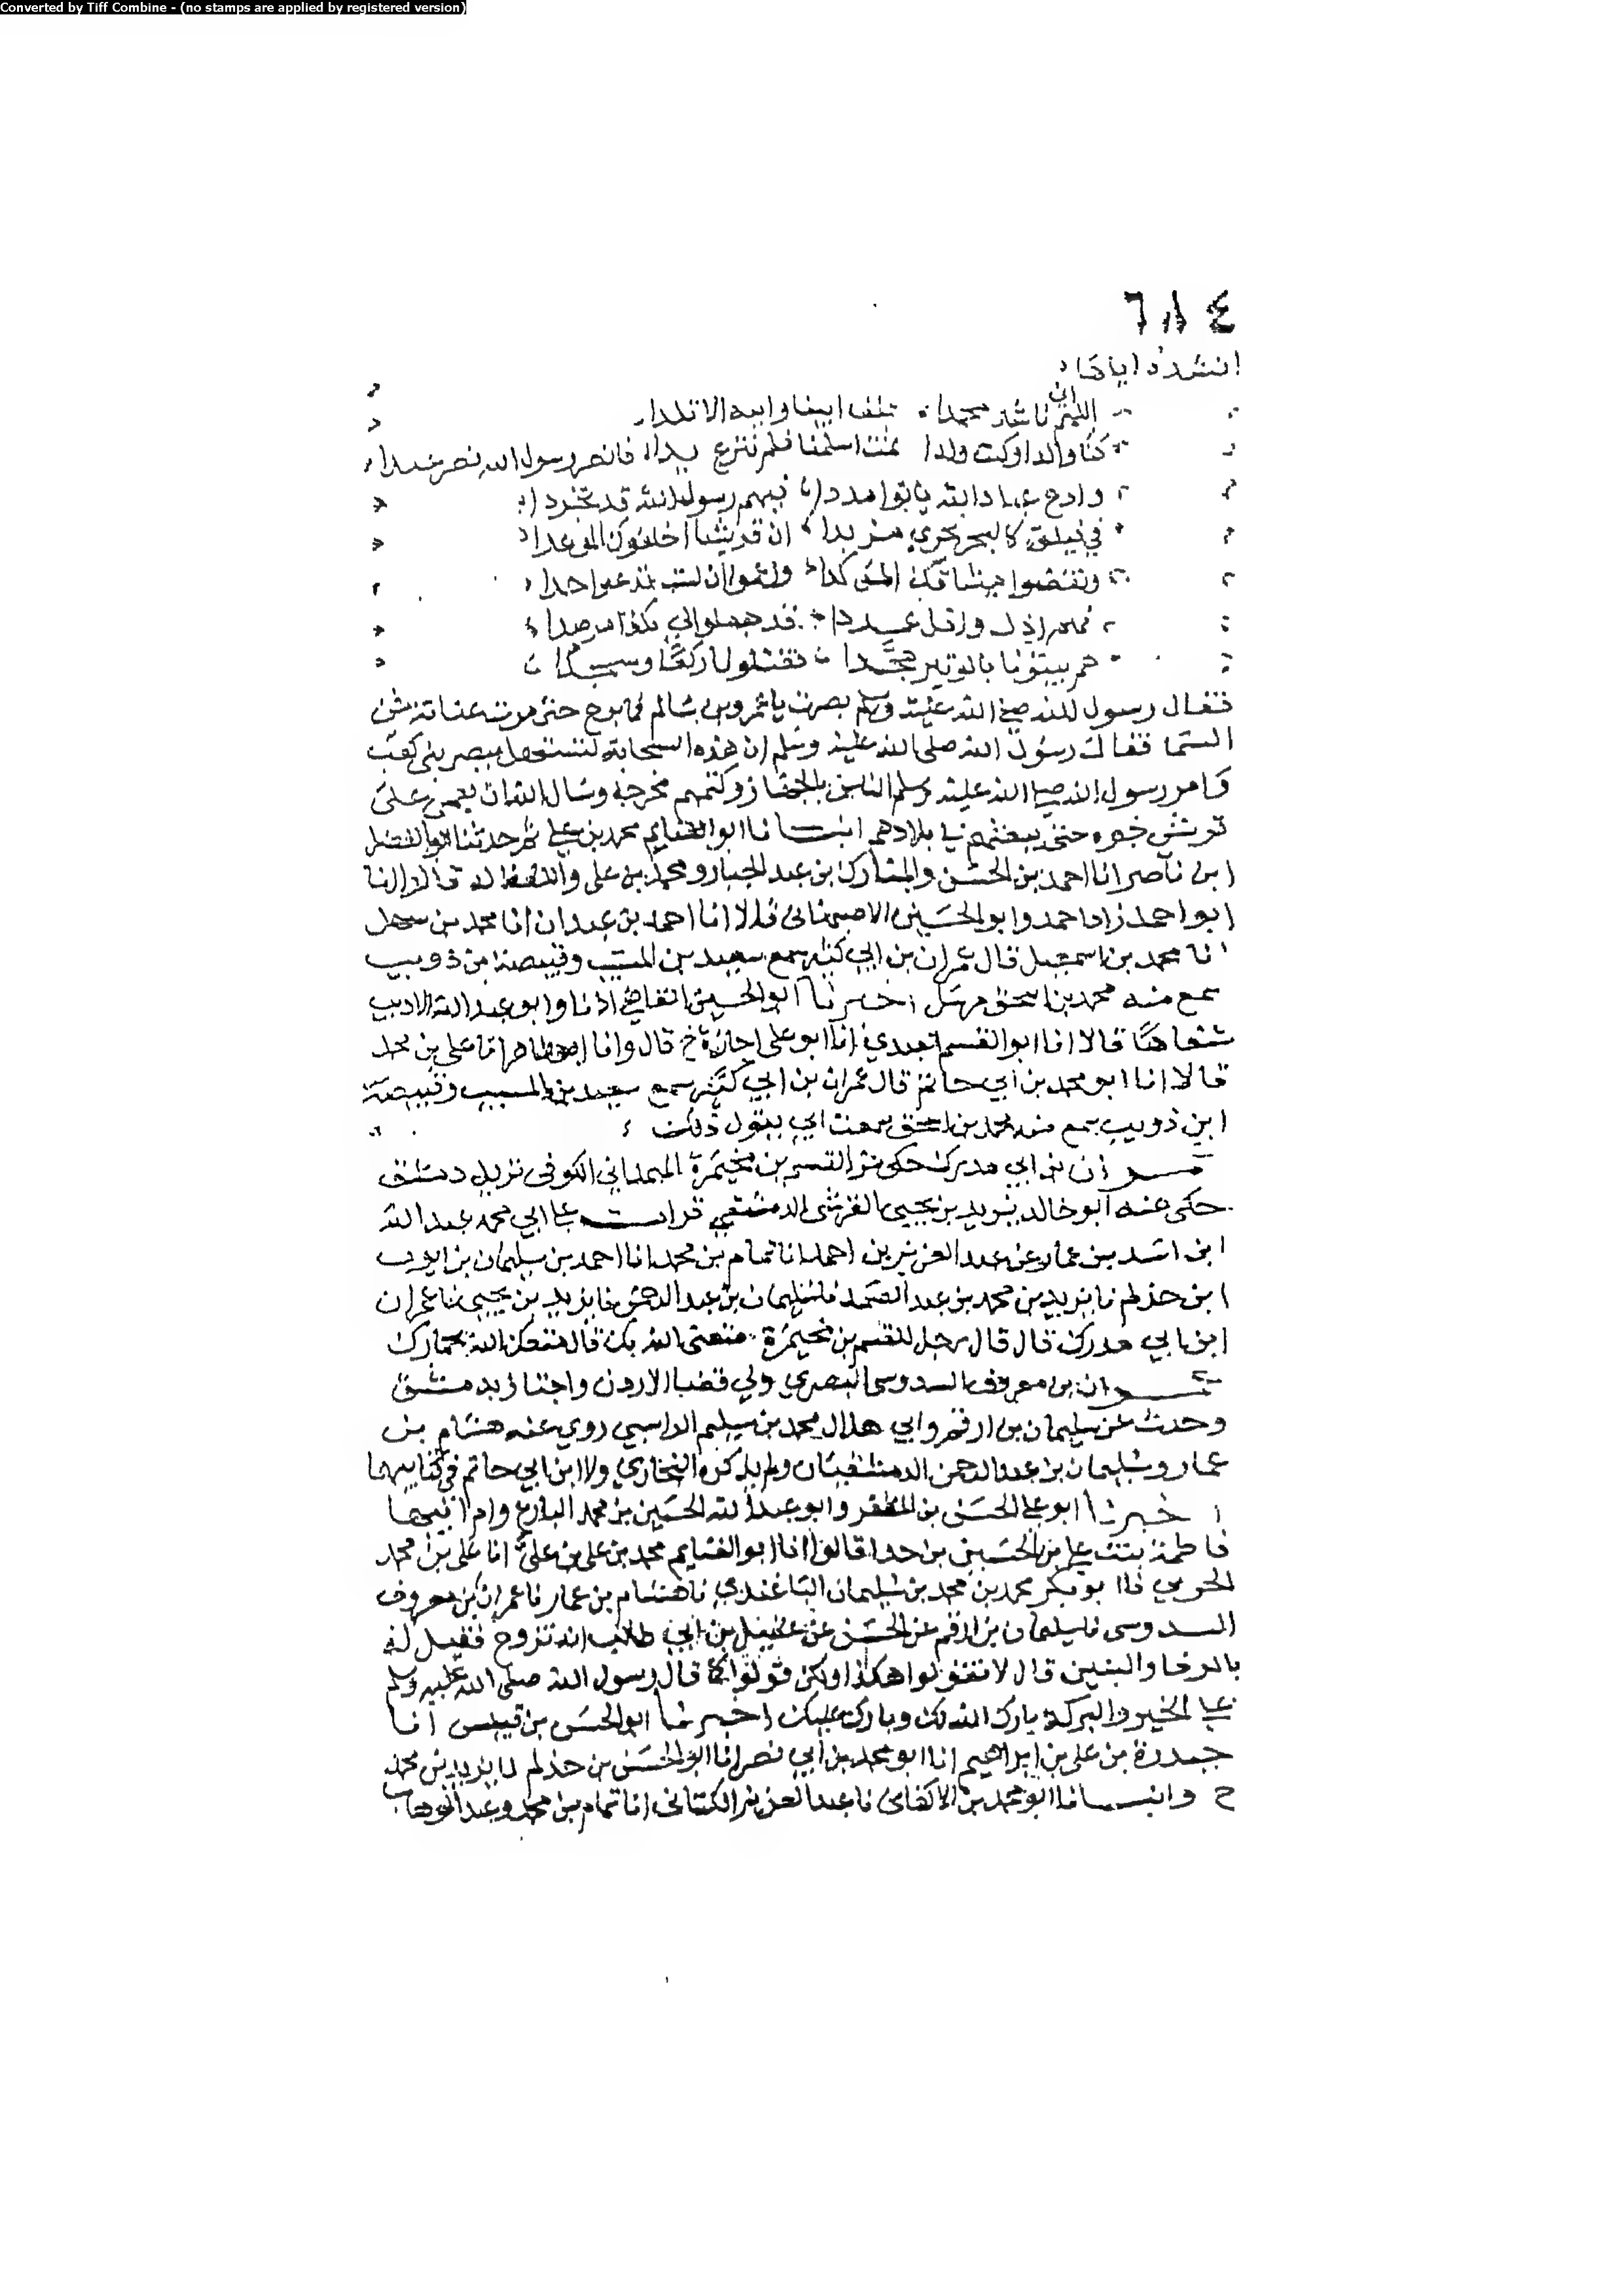 Converted by Tiff Combine - (no stamps are applied by registered version)
٦٨٤
انشده اياها
اللهم اني ناشد محمدا حلف ابينا وابيه الاتلدا
كنا والدا وكنت ولدا ثمت اسلمنا فلم ننزع يدا فانصر رسول الله نصر
وادع عباد الله ياتوا مددا فيهم رسول الله قد تجردا
في فيلق كالبحر يجري مزبدا ان قريشا اخلفوك الموعدا
ونقضوا ميثاقك الموكدا وزعموا ان لست تدعو احدا
فهم اذل واقل عددا قد جعلوا لي بكدا مرصدا
هم بيتونا بالوتير هجدا فقتلونا ركعا وسجدا
فقال رسول الله صلى الله عليه وسلم نصرت يا عمرو بن سالم فما برح حتى مرت عنانة من
السما فقال رسول الله صلى الله عليه وسلم ان هذه السحابة لتستهل بنصر بني كعب
وامر رسول الله صلى الله عليه وسلم الناس بالجهاز وكتمهم مخرجه وسال الله ان يعمي على
قريش خبره حتى يبغتهم في بلادهم انبانا ابو الغنايم محمد بن علي ثم حدثنا ابو الفضل
ابن ناصر انا احمد بن الحسن والمبارك بن عبد الجبار ومحمد بن علي واللفظ له قالوا انا
ابو احمد زاد احمد وابو الحسين الاصبهاني قالا انا احمد بن عبدان انا محمد بن سهل
انا محمد بن اسمعيل قال عمران بن ابي سمع سعيد بن المسيب وقبيصة بن ذويب
سمع منه محمد بن اسحق مرسل اخبرنا ابو الحسين القاضي اذنا وابو عبد الله الاديب
شفاها قالا انا ابو القسم العبدي انا ابو علي اجازة ح قال وانا ابو طاهر انا علي بن محمد
قالا انا ابو محمد بن ابي حاتم قال عمران بن ابي سمع سعيد بن المسيب وقبيصة
ابن ذويب سمع منه محمد بن اسحق سمعت ابي يقول ذلك
عمران بن ابي مدرك حكى عن القسم بن مخيمرة الهمداني الكوفي نزيل دمشق
حكى عنه ابو خالد يزيد بن يحيى القرشي الدمشقي قرات على ابي محمد عبد الله
ابن اسد بن عمار عن عبد العزيز بن احمد انا تمام بن محمد انا احمد بن سليمان بن ايوب
ابن حذلم نا يزيد بن محمد بن عبد الصمد نا سليمان بن عبد الرحمن نا يزيد بن يحيى نا عمران
ابن ابي مدرك قال قال رجل للقسم بن مخيمرة متعني الله بك قال متعك الله بحمارك
عمران بن معروف السدوسي البصري ولي قضا الاردن واجتاز بدمشق
وحدث عن سليمان بن ارقم وابي هلال محمد بن سليم الراسبي روى عنه هشام بن
عمار وسليمان بن عبد الرحمن الدمشقيان ولم يذكره البخاري ولا ابن ابي حاتم في كتابيهما
اخبرنا ابو علي الحسن بن المظفر وابو عبد الله الحسين بن محمد البارع وام ابيها
فاطمة بنت علي بن الحسين بن جدا قالوا انا ابو الغنايم محمد بن علي بن علي انا علي بن محمد
الحربي نا ابو بكر محمد بن محمد بن سليمان الباغندي نا هشام بن عمار نا عمران بن معروف
السدوسي نا سليمان بن ارقم عن الحسن عن عقيل بن ابي طالب انه تزوج فقيل له
بالرفا والبنين قال لا تقولوا هكذا ولكن قولوا كما قال رسول الله صلى الله عليه وسلم
على الخير والبركة بارك الله لك وبارك عليك اخبرنا ابو الحسن بن قبيس انا
حيدرة بن علي بن ابراهيم انا ابو محمد بن ابي نصر انا ابو الحسن بن حذلم نا يزيد بن محمد
ح وانبانا ابو محمد بن الاكفاني نا عبد العزيز الكتاني انا تمام بن محمد وعبد الوهاب